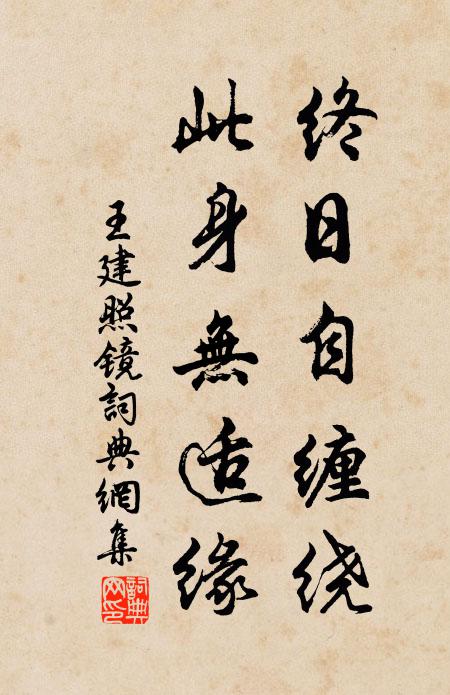 终日自缠绕
此身無适缘
王建照镜詞典網集
詞典